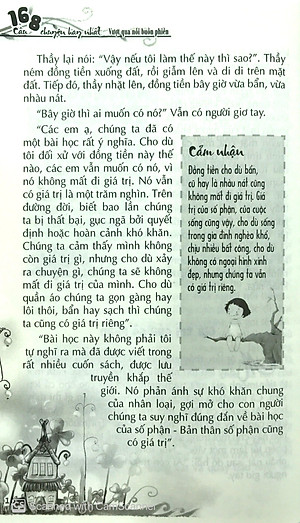 168
Câu chuyện hay nhất - Vượt qua nỗi buồn phiền
Thầy lại nói: “Vậy nếu tôi làm thế này thì sao?”. Thầy
ném đồng tiền xuống đất, rồi giẫm lên và di di trên mặt
đất. Tiếp đó, thầy nhặt lên, đồng tiền bây giờ vừa bẩn, vừa
nhàu nát.
“Bây giờ thì ai muốn có nó?” Vẫn có người giơ tay.
“Các em ạ, chúng ta đã có
một bài học rất ý nghĩa. Cho dù
tôi đối xử với đồng tiền này thế
nào, các em vẫn muốn có nó, vì
nó không mất đi giá trị. Nó vẫn
có giá trị là một trăm nghìn. Trên
đường đời, biết bao lần chúng
ta bị thất bại, gục ngã bởi quyết
định hoặc hoàn cảnh khó khăn.
Chúng ta cảm thấy mình không
còn giá trị gì, nhưng cho dù xảy
ra chuyện gì, chúng ta sẽ không
mất đi giá trị của mình. Cho dù
quần áo chúng ta gọn gàng hay
lôi thôi, bẩn hay sạch thì chúng
ta cũng có giá trị riêng”.
Cảm nhận
Đồng tiền cho dù bẩn,
cũ hay là nhàu nát cũng
không mất đi giá trị. Giá
trị của số phận, của cuộc
sống cũng vậy, cho dù sống
trong gia đình nghèo khổ,
chịu nhiều bất công, cho dù
không có ngoại hình xinh
đẹp, nhưng chúng ta vẫn
có giá trị riêng.
“Bài học này không phải tôi
tự nghĩ ra mà đã được viết trong
rất nhiều cuốn sách, được lưu
truyền khắp thế
giới. Nó phản ánh sự khó khăn chung
của nhân loại, gợi mở cho con người
chúng ta suy nghĩ đúng đắn về bài học
của số phận - Bản thân số phận cũng
có giá trị”.
Scanned with CamScanner